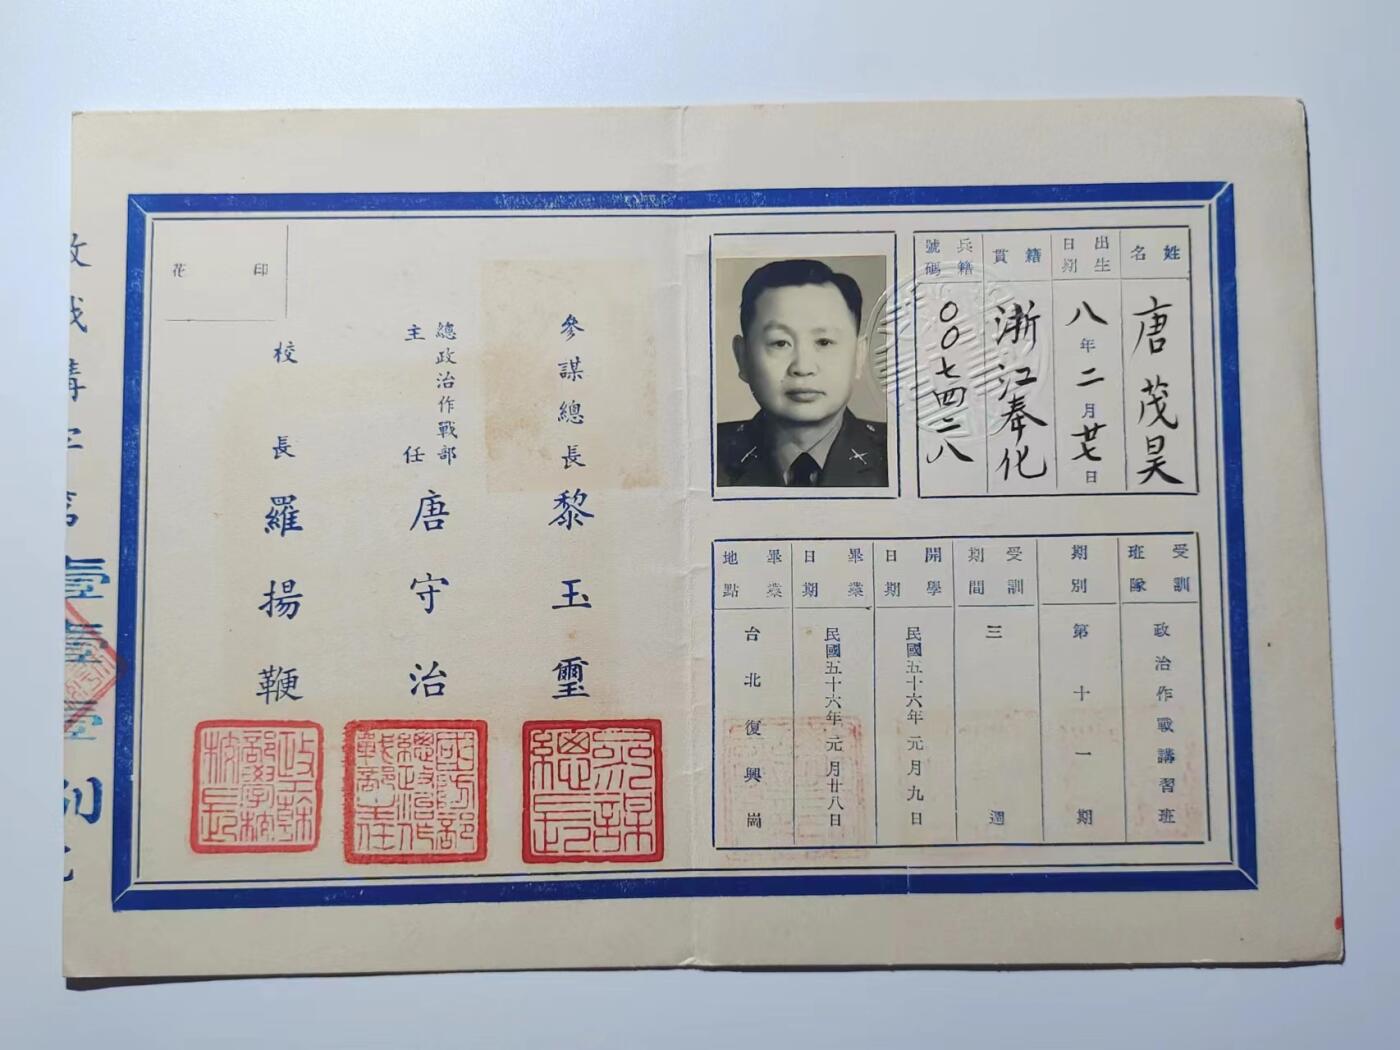 姓名
唐茂昊
出生日期
八年二月廿七日
籍貫
浙江奉化
兵籍號碼
〇〇七四二八
受訓班隊
政治作戰講習班
期別
第十一期
受訓期間
三週
開學日期
民國五十六年元月九日
畢業日期
民國五十六年元月廿八日
畢業地點
台北復興崗
參謀總長黎玉璽
總政治作戰部
主任唐守治
校長羅揚鞭
印花
參謀總長
國防部總政治作戰部主任
政工幹部學校校長